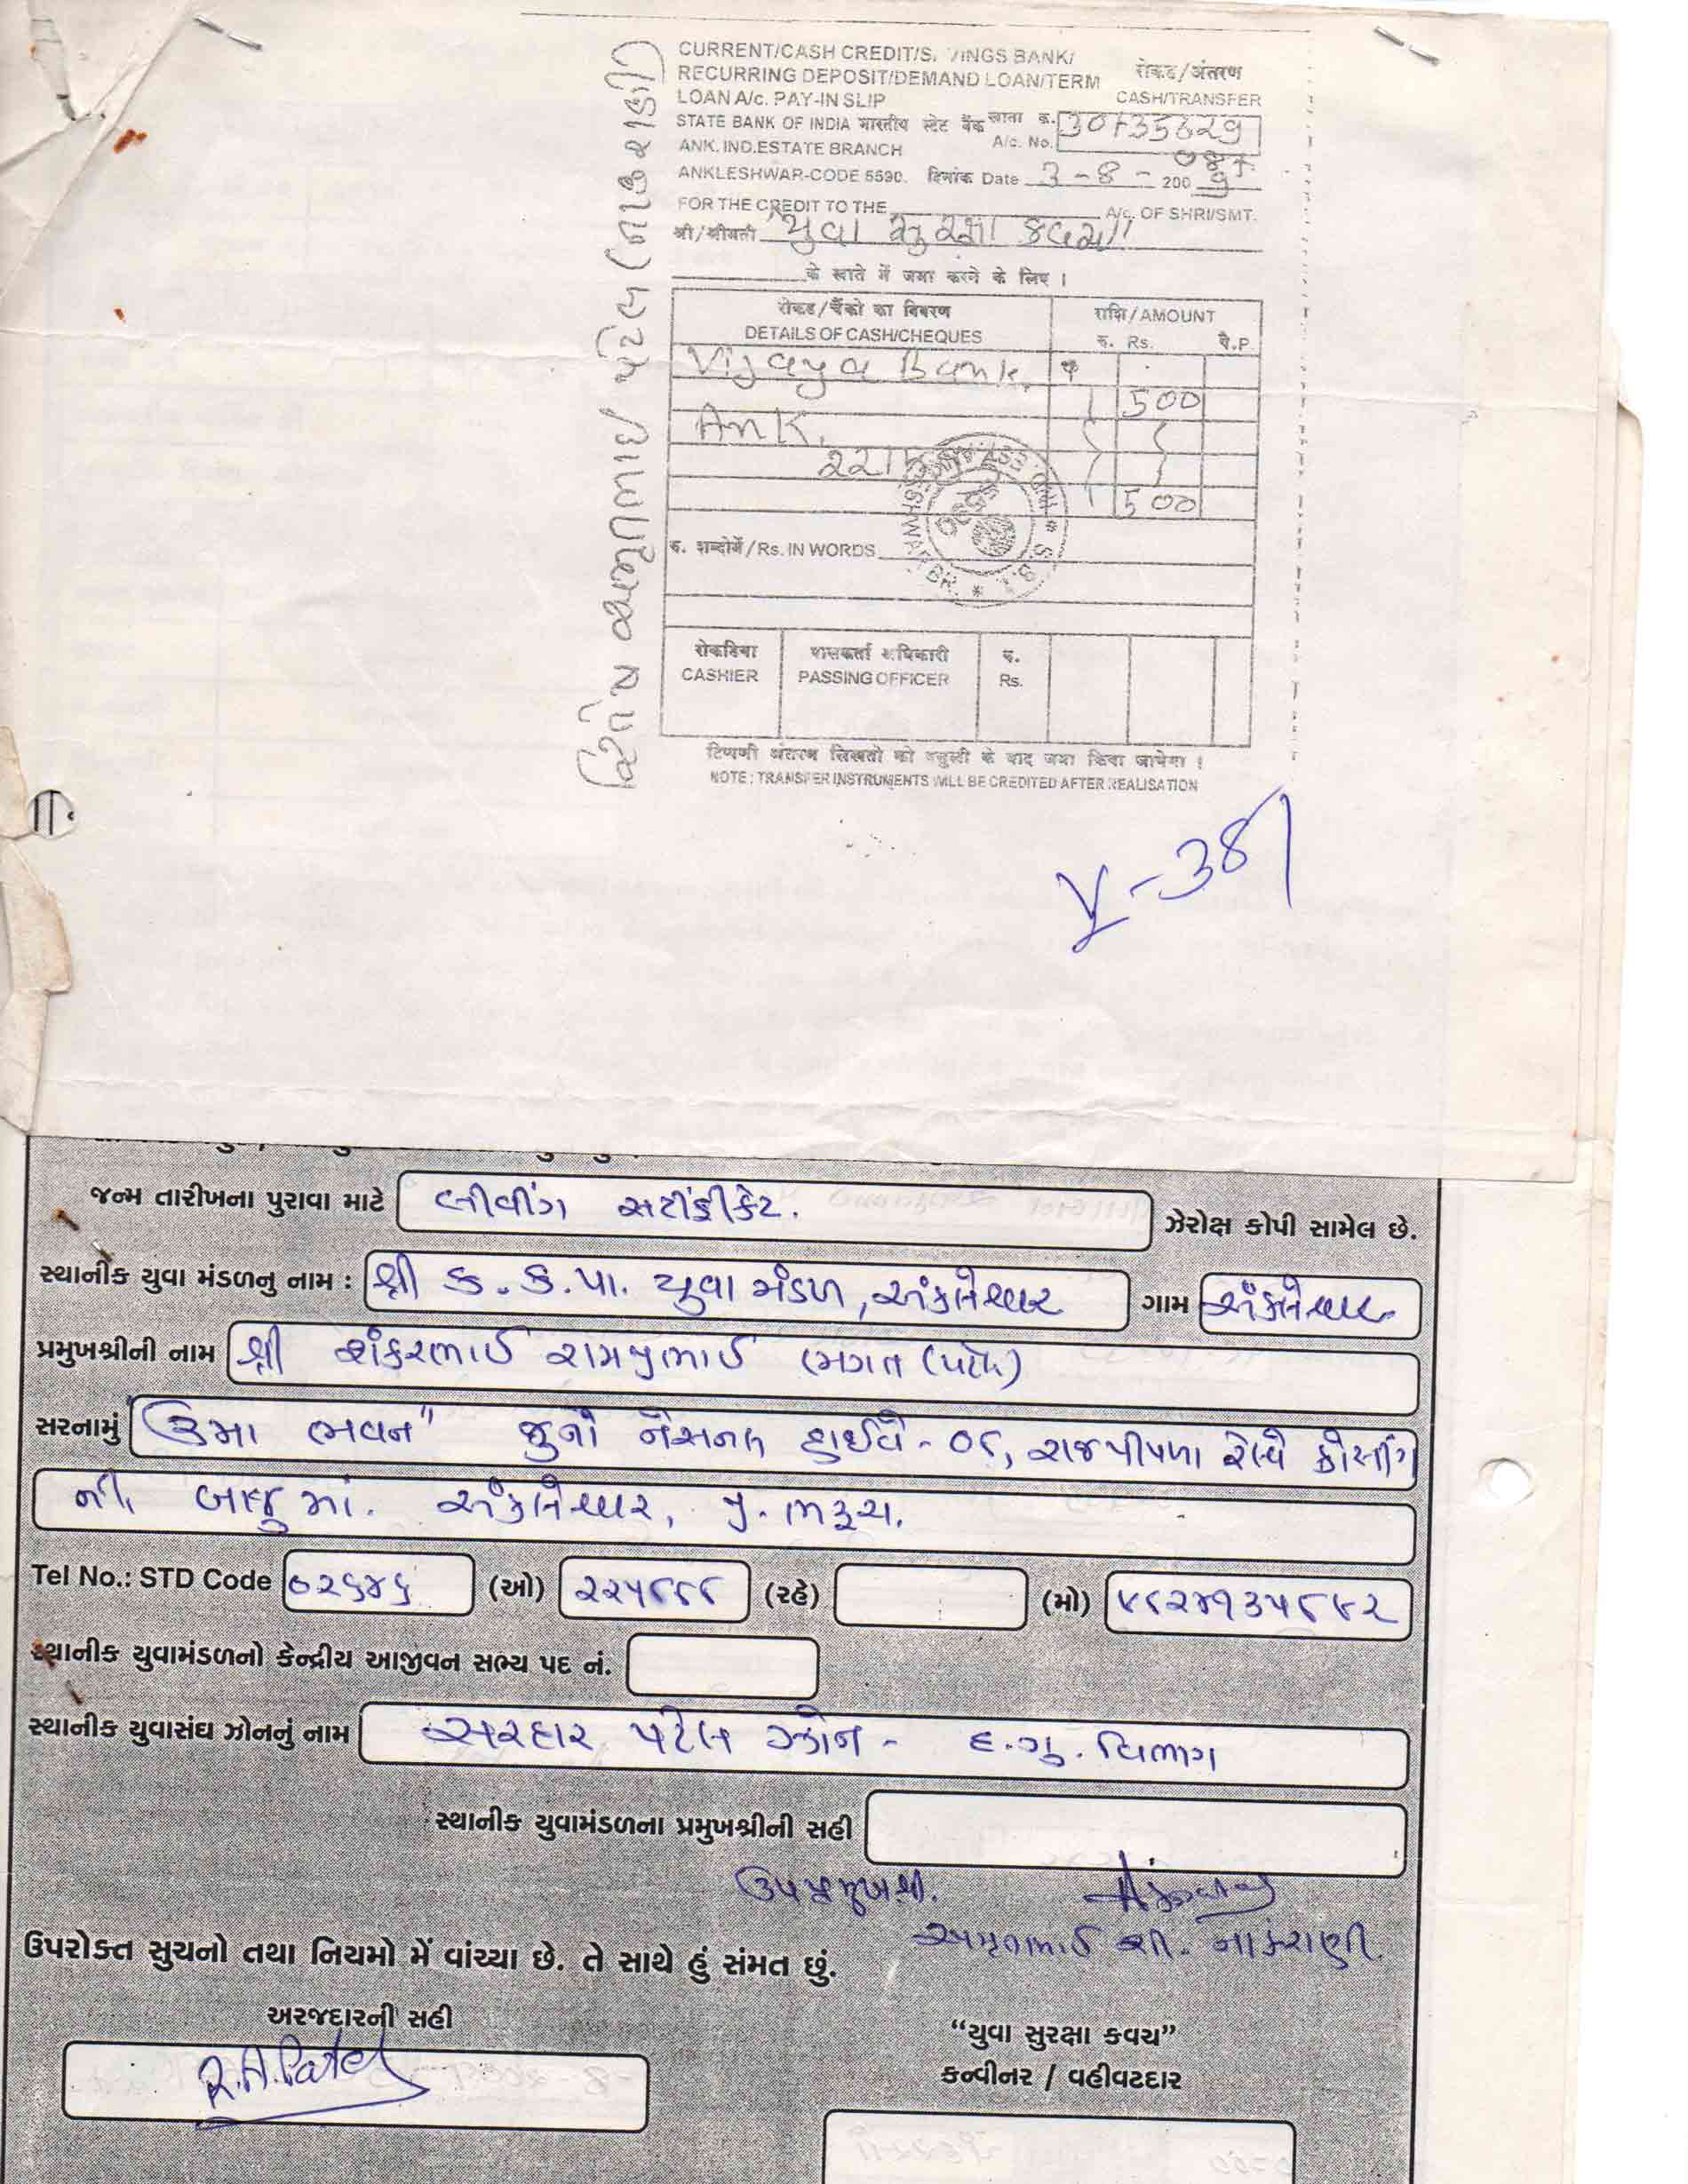 CURRENT/CASH CREDIT/S. VINGS BANK/
RECURRING DEPOSIT/DEMAND LOAN/TERM
LOAN A/c. PAY-IN SLIP
रोकड/अंतरण
CASH/TRANSFER
STATE BANK OF INDIA भारतीय स्टेट बैंक
खाता क्र.
A/c. No.
ANK. IND. ESTATE BRANCH
ANKLESHWAR-CODE 5590. दिनांक Date 3-8-2009
FOR THE CREDIT TO THE A/c. OF SHRI/SMT.
श्री/श्रीमती યુવા સુરક્ષા કવચ
के खाते में जमा करने के लिए ।
रोकड/चैंको का विवरण राशि/AMOUNT
DETAILS OF CASH/CHEQUES रु. Rs. पै.P.
Vijaya Bank,
1500
Ank.
1500
रु. शब्दोमें/Rs. IN WORDS
रोकडिया पासकर्ता अधिकारी रु.
CASHIER PASSING OFFICER Rs.
टिप्पणी अंतरण लिखतो को वसुली के बाद जमा किया जायेगा ।
NOTE : TRANSFER INSTRUMENTS WILL BE CREDITED AFTER REALISATION
Y-381
જન્મ તારીખના પુરાવા માટે લીવીંગ સર્ટીફીકેટ. ઝેરોક્ષ કોપી સામેલ છે.
સ્થાનીક યુવા મંડળનુ નામ : શ્રી ક. ક. પા. યુવા મંડળ, અંકલેશ્વર ગામ અંકલેશ્વર
પ્રમુખશ્રીની નામ શ્રી શંકરભાઈ રામજીભાઈ ભગત (પટેલ)
સરનામું "ઉમા ભવન" જુનો નેસનલ હાઈવે-૦૮, રાજપીપળા રેલ્વે ક્રોસીંગ
ની બાજુ માં. અંકલેશ્વર, જી. ભરૂચ.
Tel No.: STD Code ૦૨૬૪૬ (ઓ) ૨૨૫૮૮૮ (રહે) (મો) ૯૮૨૪૧૩૫૮૯૨
સ્થાનીક યુવામંડળનો કેન્દ્રીય આજીવન સભ્ય પદ નં.
સ્થાનીક યુવાસંઘ ઝોનનું નામ સરદાર પટેલ ઝોન - દ.ગુ. વિભાગ
સ્થાનીક યુવામંડળના પ્રમુખશ્રીની સહી
ઉપપ્રમુખશ્રી.
નાકરાણી
ઉપરોક્ત સુચનો તથા નિયમો મેં વાંચ્યા છે. તે સાથે હું સંમત છું.
અરજદારની સહી
R.A.Patel
“યુવા સુરક્ષા કવચ”
કન્વીનર / વહીવટદાર